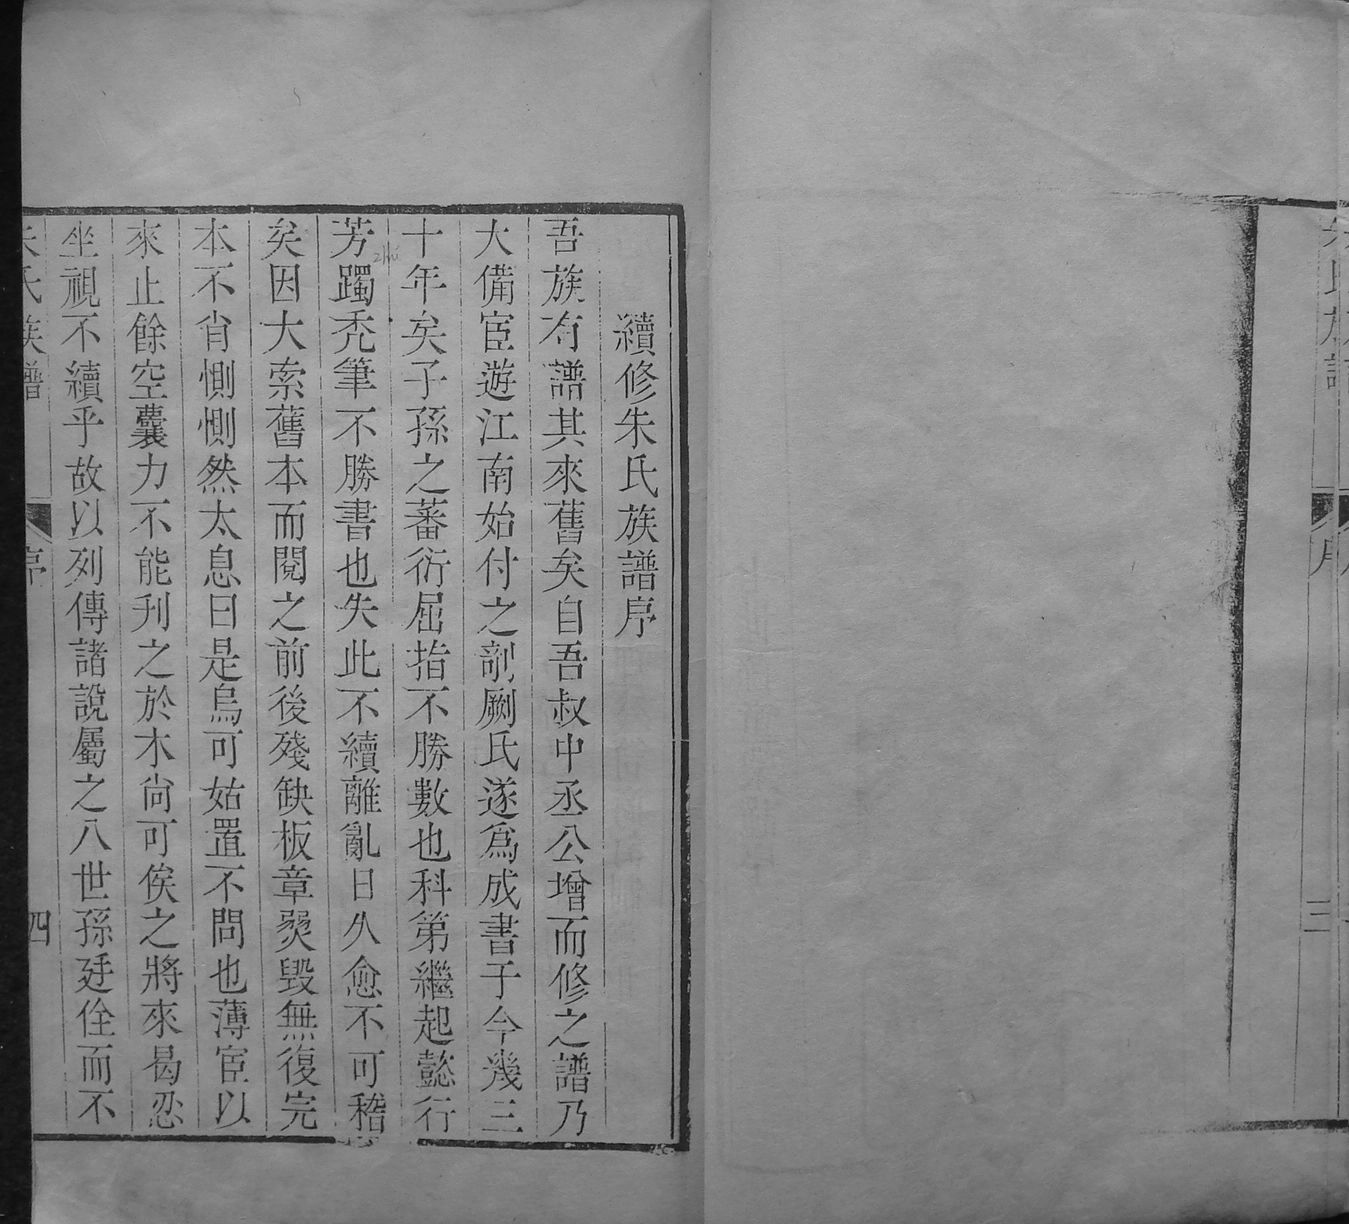 朱氏族譜
序
三
續修朱氏族譜序
吾族有譜其來舊矣自吾叔中丞公增而修之譜乃
大備宦遊江南始付之剞劂氏遂爲成書于今幾三
十年矣子孫之蕃衍屈指不勝數也科第繼起懿行
芳躅禿筆不勝書也失此不續離亂日久愈不可稽
zhu
矣因大索舊本而閱之前後殘缺板章燬毀無復完
本不肖惻惻然太息曰是烏可姑置不問也薄宦以
來止餘空囊力不能刋之於木尚可俟之將來曷忍
坐視不續乎故以列傳諸說屬之八世孫廷佺而不
朱氏族譜
序
四